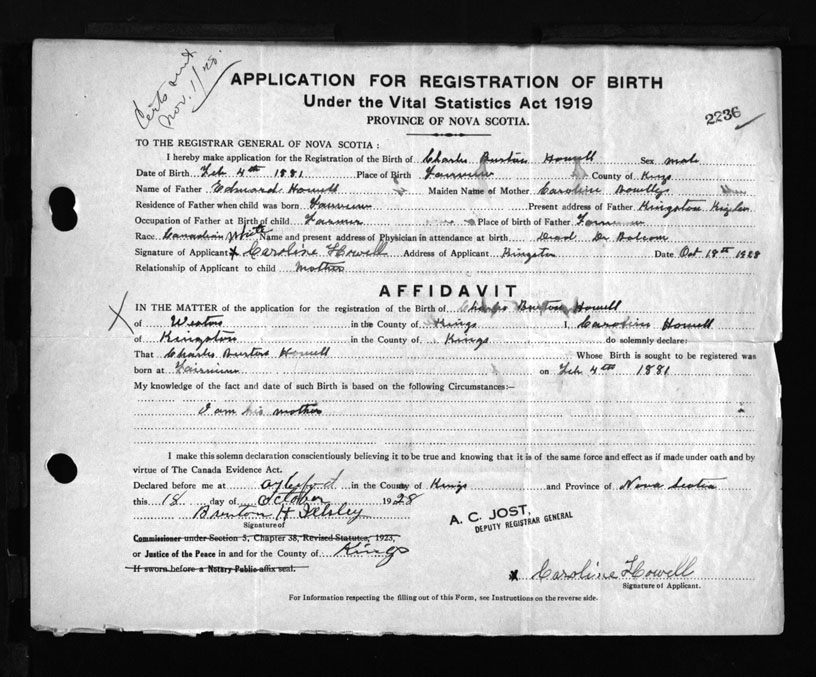 Certs sent
Nov. 1/28.
APPLICATION FOR REGISTRATION OF BIRTH
Under the Vital Statistics Act 1919
PROVINCE OF NOVA SCOTIA.
2236
TO THE REGISTRAR GENERAL OF NOVA SCOTIA :
I hereby make application for the Registration of the Birth of Charles Burton Howell Sex male
Date of Birth Feb 4th 1881 Place of Birth Fairview County of Kings
Name of Father Edmund Howell Maiden Name of Mother Caroline
Residence of Father when child was born Fairview Present address of Father Kingston
Occupation of Father at Birth of child Farmer Place of birth of Father
Race Canadian White Name and present address of Physician in attendance at birth Dead Dr
Signature of Applicant x Caroline Howell Address of Applicant Kingston Date Oct 18th 1928
Relationship of Applicant to child Mother
AFFIDAVIT
IN THE MATTER of the application for the registration of the Birth of Charles Burton Howell
of Weston in the County of Kings I, Caroline Howell
of Kingston in the County of Kings do solemnly declare:
That Charles Burton Howell Whose Birth is sought to be registered was
born at Fairview on Feb 4th 1881
My knowledge of the fact and date of such Birth is based on the following Circumstances:—
I am his mother
I make this solemn declaration conscientiously believing it to be true and knowing that it is of the same force and effect as if made under oath and by
virtue of The Canada Evidence Act.
Declared before me at Aylesford in the County of Kings and Province of Nova Scotia
this 18 day of October 1928
Brenton H Selsley
Signature of
A. C. JOST,
DEPUTY REGISTRAR GENERAL
Commissioner under Section 5, Chapter 38, Revised Statutes, 1923,
or Justice of the Peace in and for the County of Kings
If sworn before a Notary Public affix seal.
x Caroline Howell
Signature of Applicant.
For Information respecting the filling out of this Form, see Instructions on the reverse side.